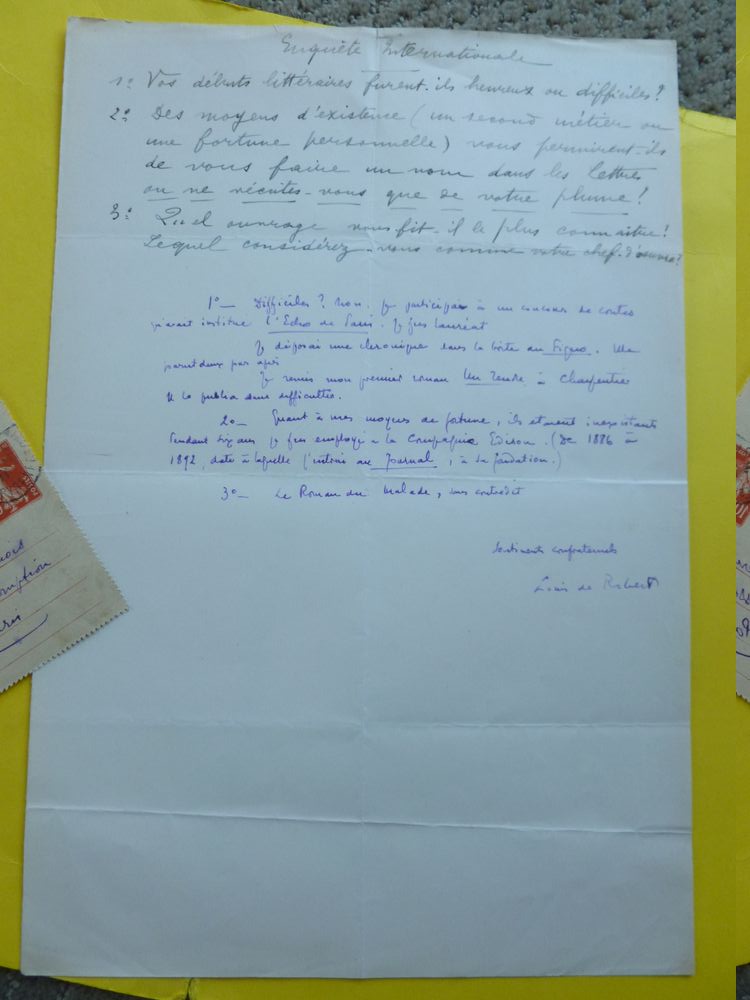 Enquête Internationale
1º Vos débuts littéraires furent-ils heureux ou difficiles?
2º Des moyens d'existence (un second métier ou
une fortune personnelle) vous permirent-ils
de vous faire un nom dans les lettres
ou ne vécûtes-vous que de votre plume?
3º Quel ouvrage vous fit-il le plus connaître?
Lequel considérez-vous comme votre chef-d'œuvre?
1º — Difficiles? Non. Je participai à un concours de contes
qu'avait institué l'Echo de Paris. Je fus lauréat
Je déposai une chronique dans la boîte du Figaro. Elle
parut deux jours après
Je remis mon premier roman Un Tendre à Charpentier
qui le publia sans difficultés.
2º — Quant à mes moyens de fortune, ils étaient inexistants
Pendant six ans je fus employé à la Compagnie Edison. (De 1886 à
1892, date à laquelle j'entrai au Journal, à sa fondation.)
3º — Le Roman du Malade, sans contredit
Sentiments confraternels
Louis de Robert
ption
ris